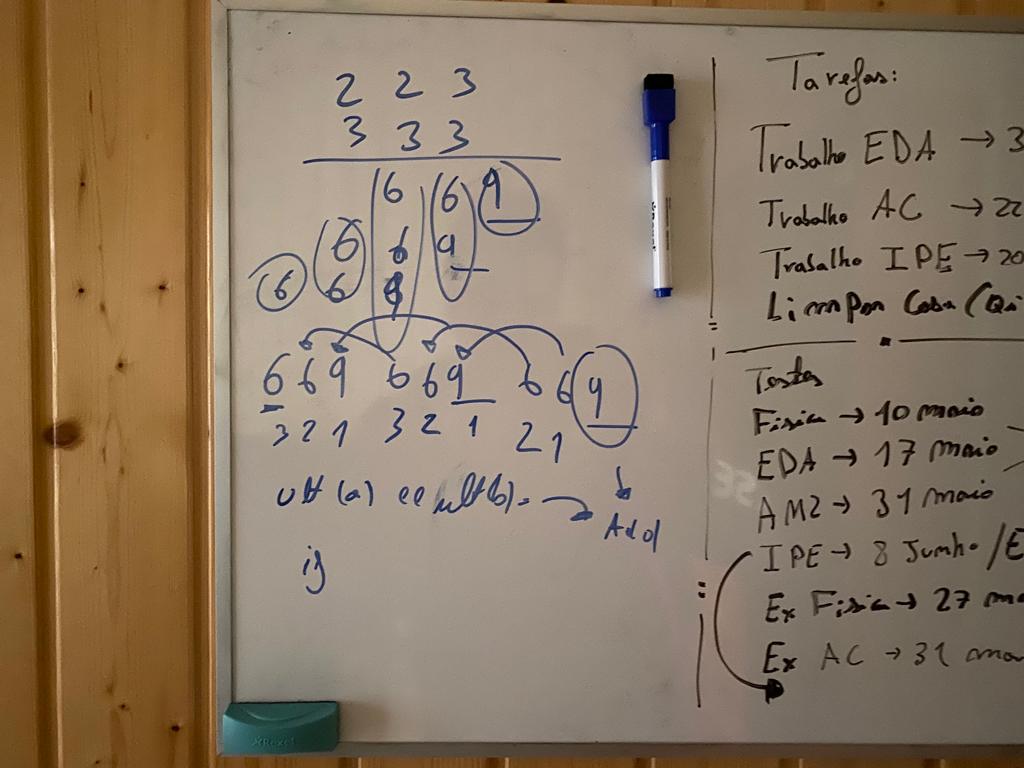 2 2 3
3 3 3
6 6 9
6 6 9
6 6 9
6 6 9 6 6 9 6 6 9
3 2 1 3 2 1 2 1
(a)
Add
Tarefas:
Trabalho EDA → 3
Trabalho AC → 22
Trabalho IPE → 20
Limpar Casa (Qui
Testes
Fisica → 10 maio
EDA → 17 maio
AM2 → 31 maio
IPE → 8 Junho / E
Ex Fisica → 27 ma
Ex AC → 31 ma
Rexel